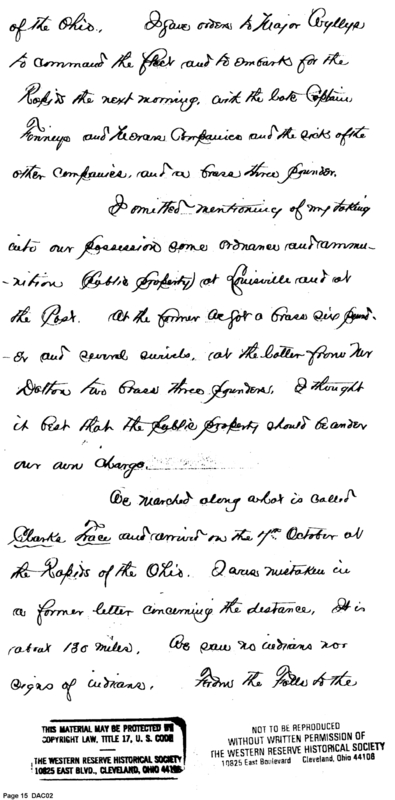 of the Ohio. I gave orders to Major Wyllys
to command the fleet and to embark for the
Rapids the next morning, with the late Captain
Finneys and Mercers Companies and the sick of the
other companies, and a brass three pounder.
I omitted mentioning of my taking
into our possession some ordnance and ammu-
-nition (Public Property) at Louisville and at
the Post. At the former we got a brass six pound-
-er and several swivels, at the latter from Mr
Dalton two brass three pounders. I thought
it best that the public property should be under
our own charge.
We marched along what is called
Clarks Trace and arrived on the 7th October at
the Rapids of the Ohio. I was mistaken in
a former letter concerning the distance. It is
about 130 miles. We saw no indians nor
signs of indians. From the Falls to the
THIS MATERIAL MAY BE PROTECTED BY
COPYRIGHT LAW, TITLE 17, U. S. CODE
THE WESTERN RESERVE HISTORICAL SOCIETY
10825 EAST BLVD., CLEVELAND, OHIO 44106
NOT TO BE REPRODUCED
WITHOUT WRITTEN PERMISSION OF
THE WESTERN RESERVE HISTORICAL SOCIETY
10825 East Boulevard Cleveland, Ohio 44106
Page 15 DAC02